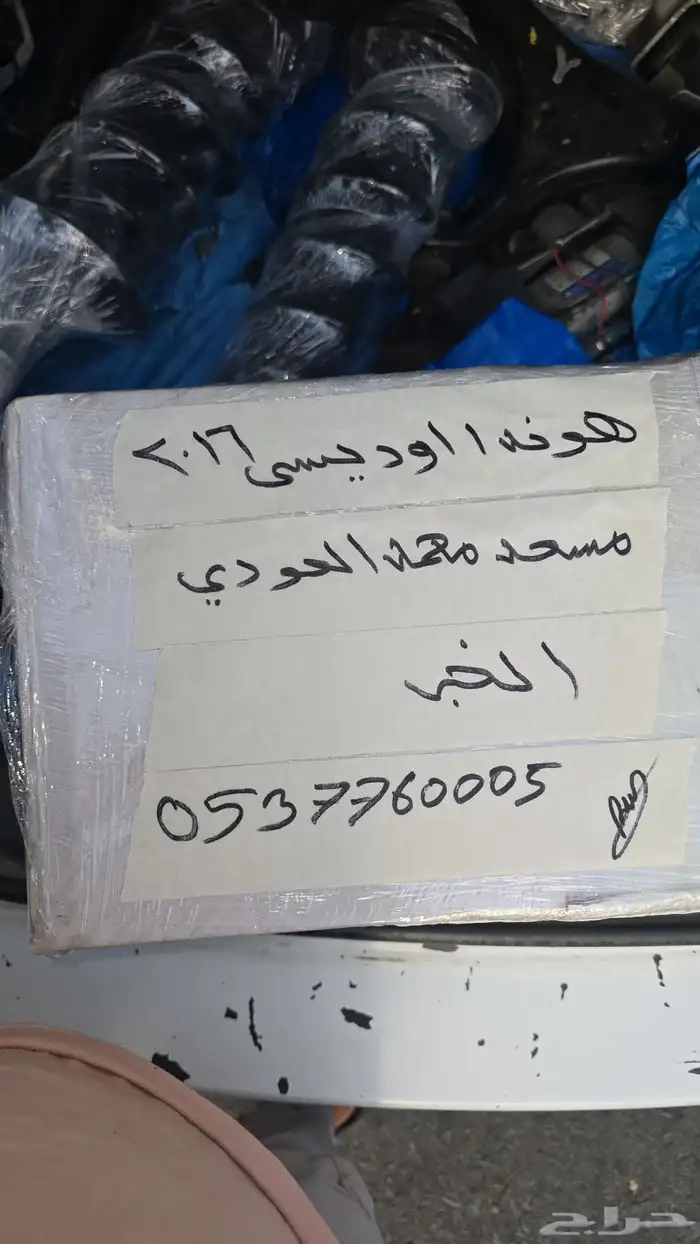 هوندا اوديسى ٢٠١٦
مسعد محمد العودي
الخبر
0537760005
حراج